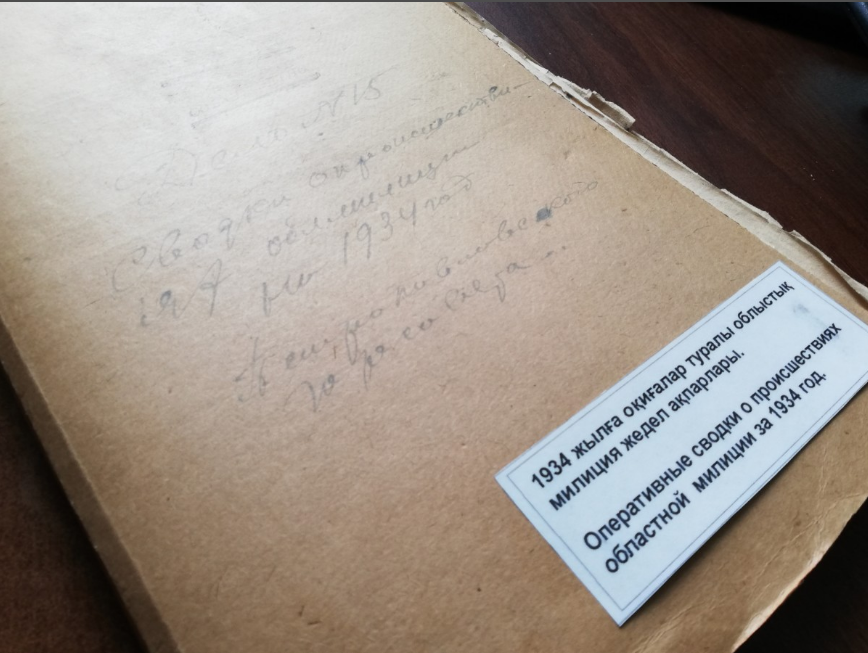 Дело №15
Сводки о происшестви-
ях облмилиции
за 1934 год
Петропавловского
горсовета
1934 жылға оқиғалар туралы облыстық
милиция жедел ақпарлары.
Оперативные сводки о происшествиях
областной милиции за 1934 год.